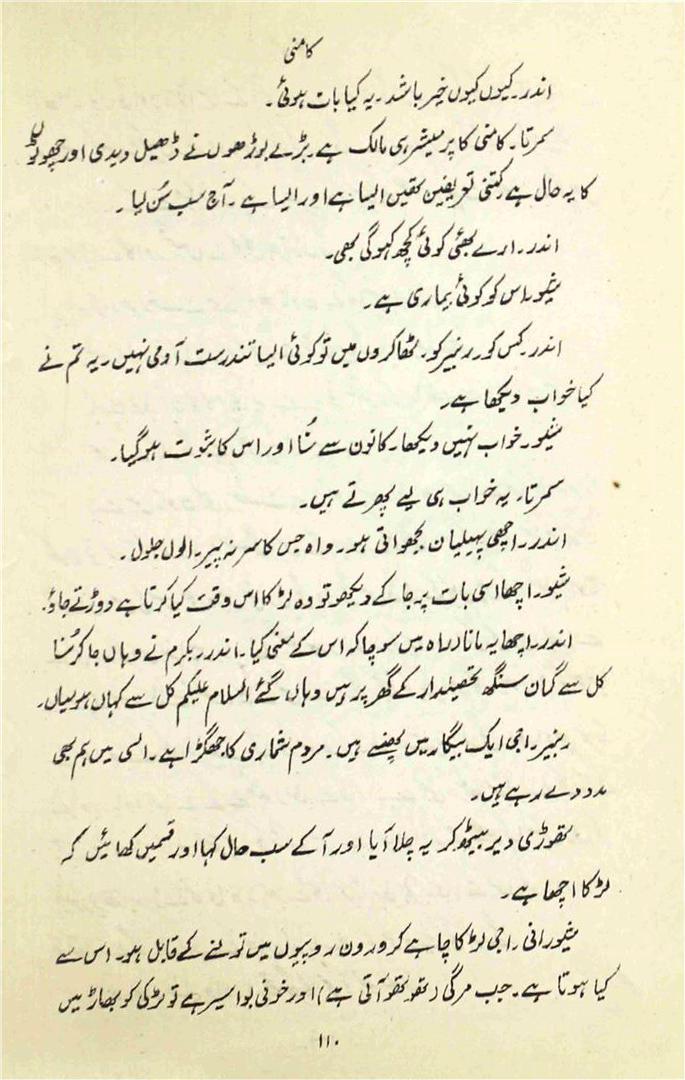 کامنی
اندر۔ کیوں کیوں خیر باشد۔ یہ کیا بات ہوئی۔
سمرتا۔ کامنی کا پرمیشر ہی مالک ہے۔ بڑے بوڑھوں نے ڈھیل دیدی اور چھوٹوں
کا یہ حال ہے کتنی تعریفین تھیں ایسا ہے اور ایسا ہے۔ آج سب سُن لیا۔
اندر۔ ارے بھئی کوئی کچھ کہوگی بھی۔
شیو۔ اس کو کوئی بیماری ہے۔
اندر۔ کس کو۔ رنبیر کو۔ ٹھاکروں میں تو کوئی ایسا تندرست آدمی نہیں۔ یہ تم نے
کیا خواب دیکھا ہے۔
شیو۔ خواب نہیں دیکھا۔ کانون سے سُنا اور اس کا ثبوت ہوگیا۔
سمرتا۔ یہ خواب ہی لیے پھرتے ہیں۔
اندر۔ اچھی پہیلیان بجھواتی ہو۔ واہ جس کا سر نہ پیر۔ الول جلول۔
شیو۔ اچھا اسی بات پر جا کے دیکھو تو وہ لڑکا اس وقت کیا کرتا ہے دوڑتے جاؤ۔
اندر۔ اچھا یہ مانا۔ راہ میں سوچا کہ اس کے معنی کیا۔ اندر بکرم نے وہاں جا کر سُنا
کل سے گمان سنگھ تحصیلدار کے گھر پر ہیں وہاں گئے السلام علیکم کل سے کہاں ہو میاں۔
رنبیر۔ اجی ایک بیگار میں پھنسے ہیں۔ مردم شماری کا جھگڑا ہے۔ اسی میں ہم بھی
مدد دے رہے ہیں۔
تھوڑی دیر بیٹھ کر یہ چلا آیا اور آ کے سب حال کہا اور قسمیں کھائیں کہ
لڑکا اچھا ہے۔
شیورانی۔ اجی لڑکا چاہے کرورون روپیوں میں تولنے کے قابل ہو۔ اس سے
کیا ہوتا ہے۔ جب مرگی (تھو تھو آتی ہے) اور خونی بواسیر ہے تو لڑکی کو بھاڑ میں
۱۱۰